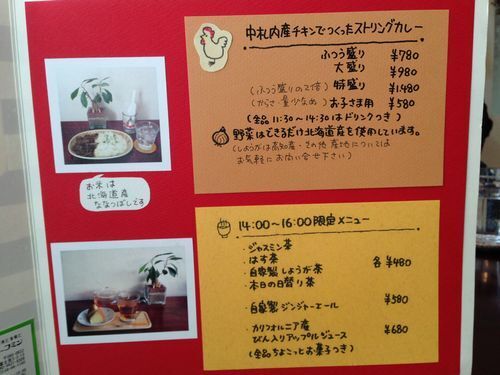 中札内産チキンでつくったストリングカレー
ふつう盛り ¥780
大盛り ¥980
(ふつう盛りの2倍) 特盛り ¥1,480
(からさ・量少なめ) お子さま用 ¥580
(全品 11:30〜14:30はドリンクつき)
野菜はできるだけ北海道産を使用しています。
(しょうがは高知産・その他産地については
お気軽にお問い合せ下さい)
お米は
北海道産
ななつぼしです
14:00〜16:00限定メニュー
・ジャスミン茶
・はす茶
・自家製しょうが茶
・本日の日替り茶
各¥480
・自家製ジンジャーエール ¥580
・カリフォルニア産
びん入りアップルジュース ¥680
(全品ちょこっとお菓子つき)